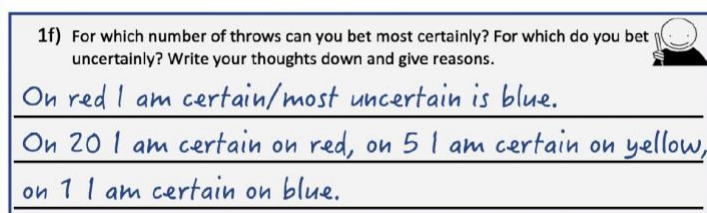 1f) For which number of throws can you bet most certainly? For which do you bet
uncertainly? Write your thoughts down and give reasons.
On red I am certain/most uncertain is blue.
On 20 I am certain on red, on 5 I am certain on yellow,
on 1 I am certain on blue.